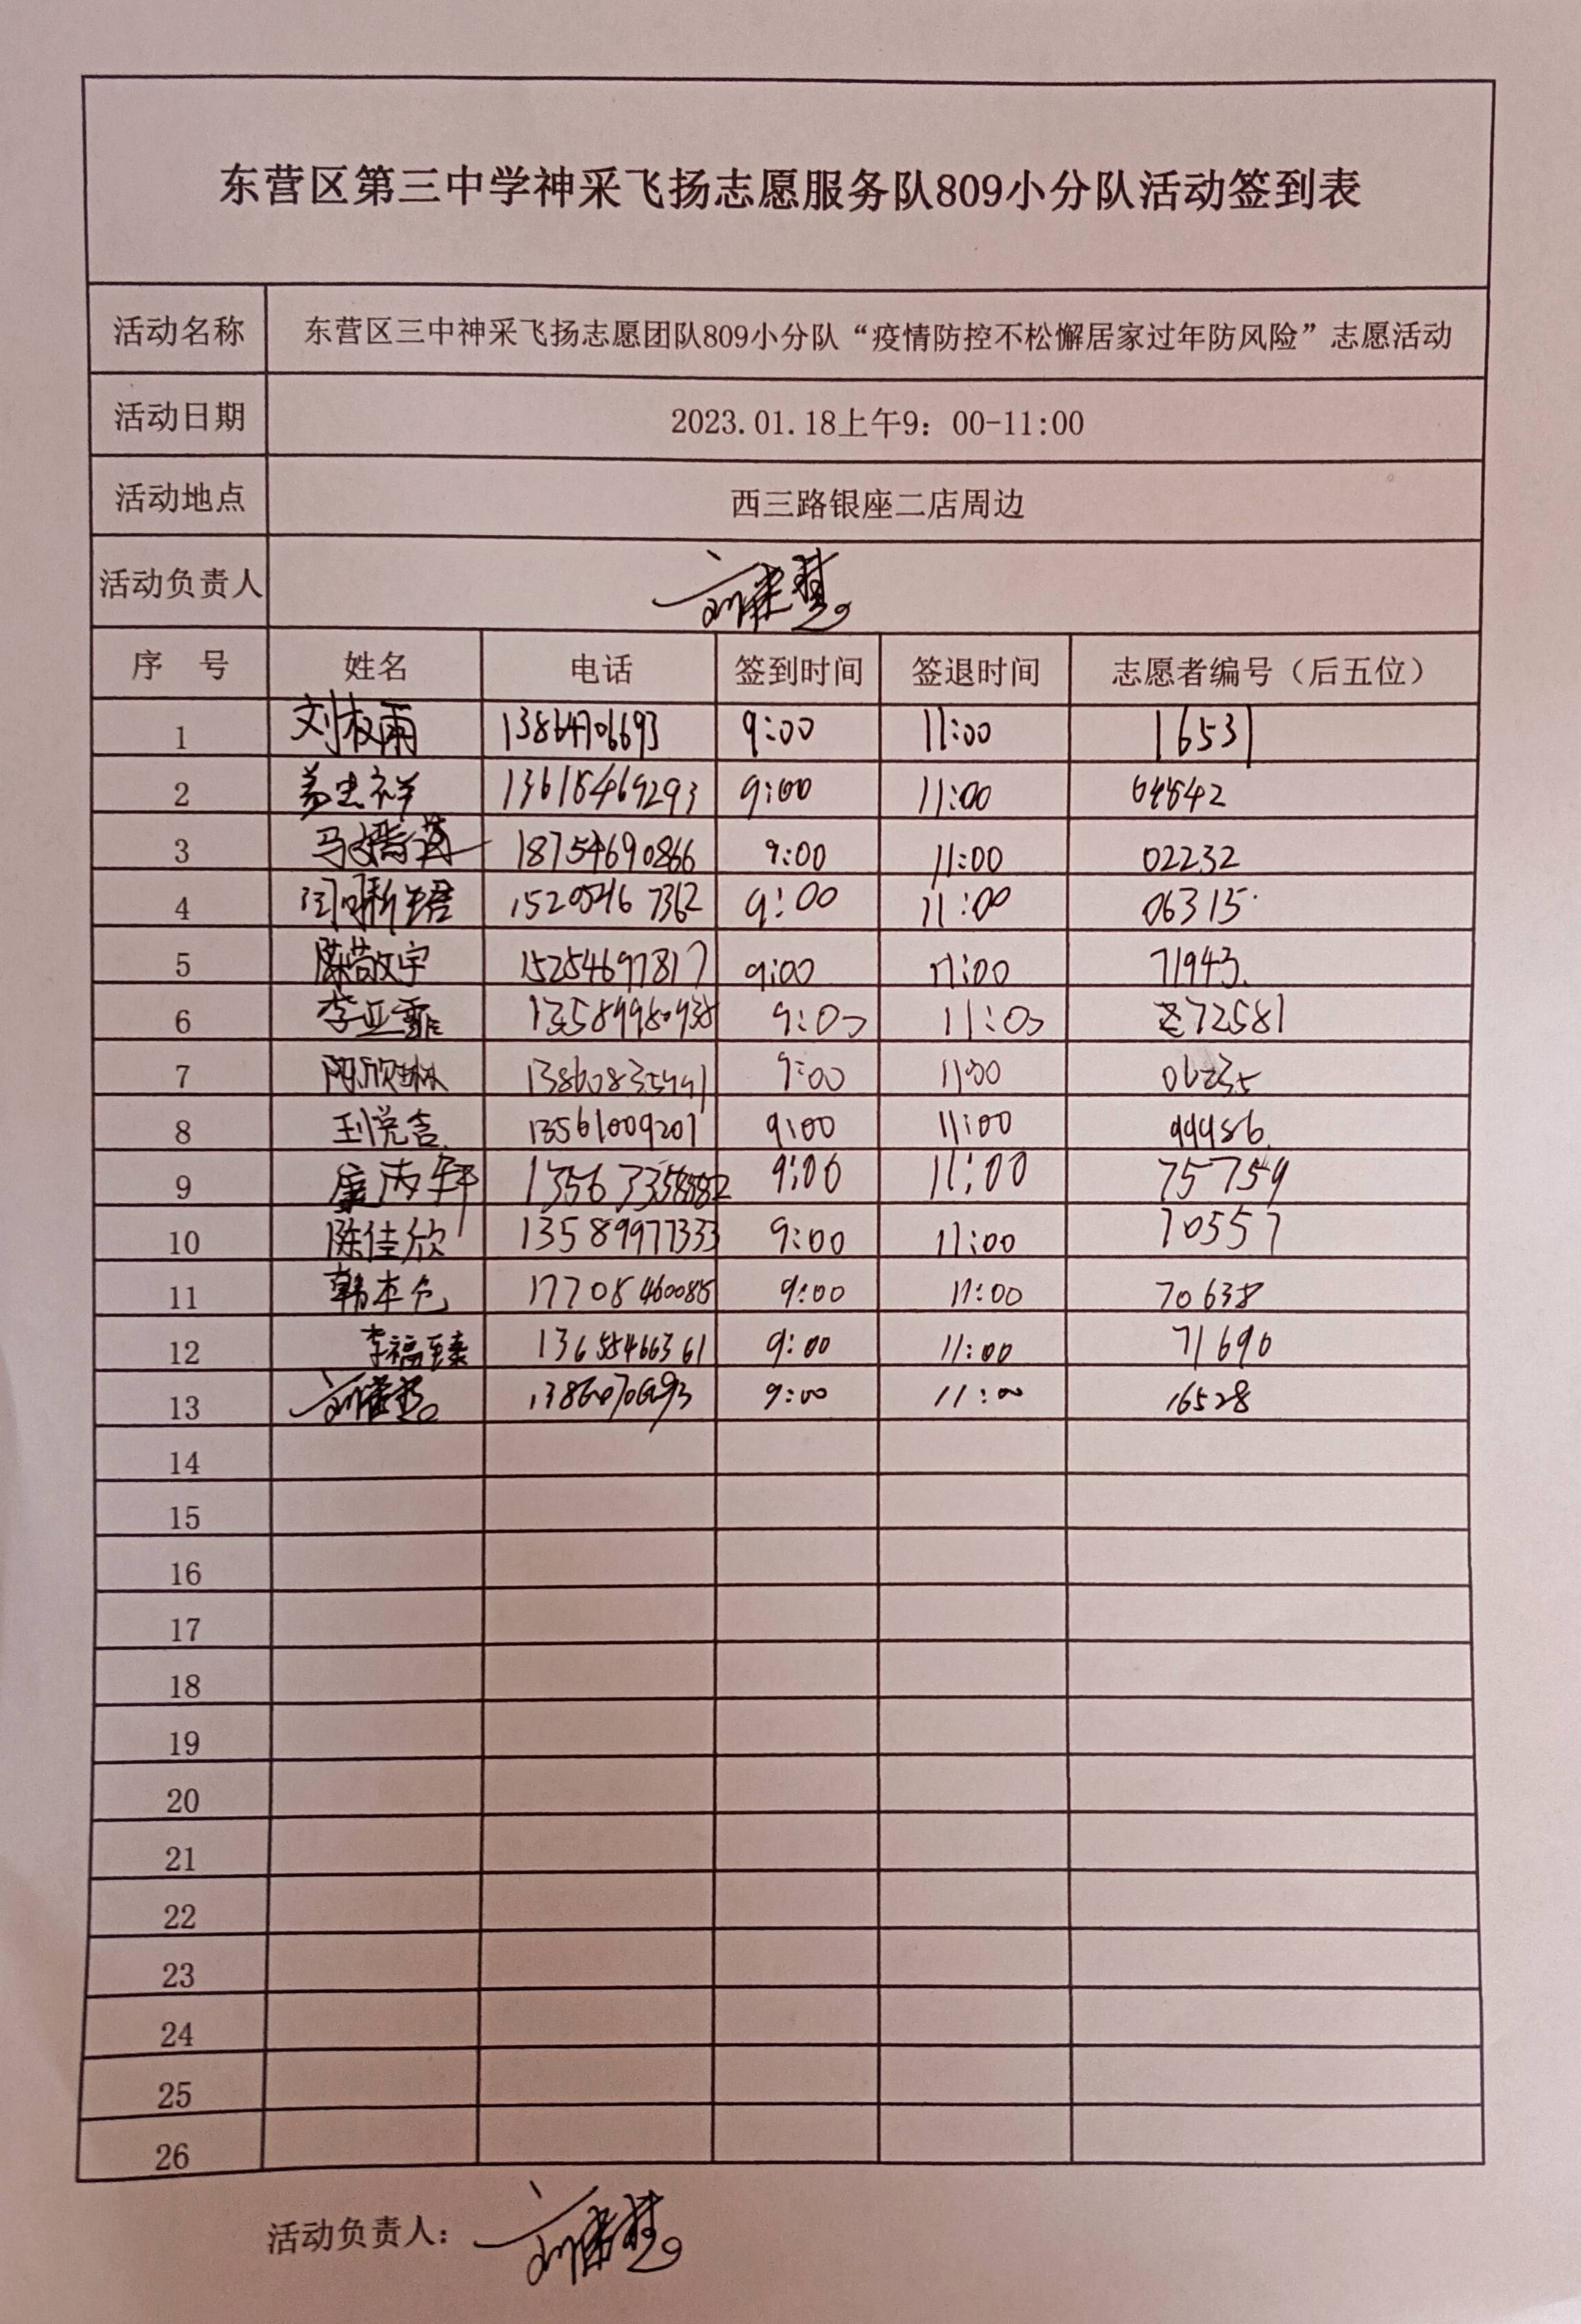 东营区第三中学神采飞扬志愿服务队809小分队活动签到表
活动名称 东营区三中神采飞扬志愿团队809小分队“疫情防控不松懈居家过年防风险”志愿活动
活动日期 2023.01.18上午9：00-11:00
活动地点 西三路银座二店周边
活动负责人
序 号 姓名 电话 签到时间 签退时间 志愿者编号（后五位）
1 刘 雨 13864706693 9:00 11:00 16531
2 祥 9:00 11:00
3 马 18754690866 9:00 11:00 02232
4 15205467362 9:00 11:00 06315
5 陈敬宇 15254697817 9:00 11:00 71943.
6 李亚 9:00 11:00 72581
7 欣琳 9:00 11:00
8 悦 13561009201 9:00 11:00
9 9:00 11:00 75759
10 陈佳欣 13589977333 9:00 11:00 70557
11 韩本 9:00 11:00 70638
12 李福臻 9:00 11:00 71690
13 9:00 11:00 16528
14
15
16
17
18
19
20
21
22
23
24
25
26
活动负责人：